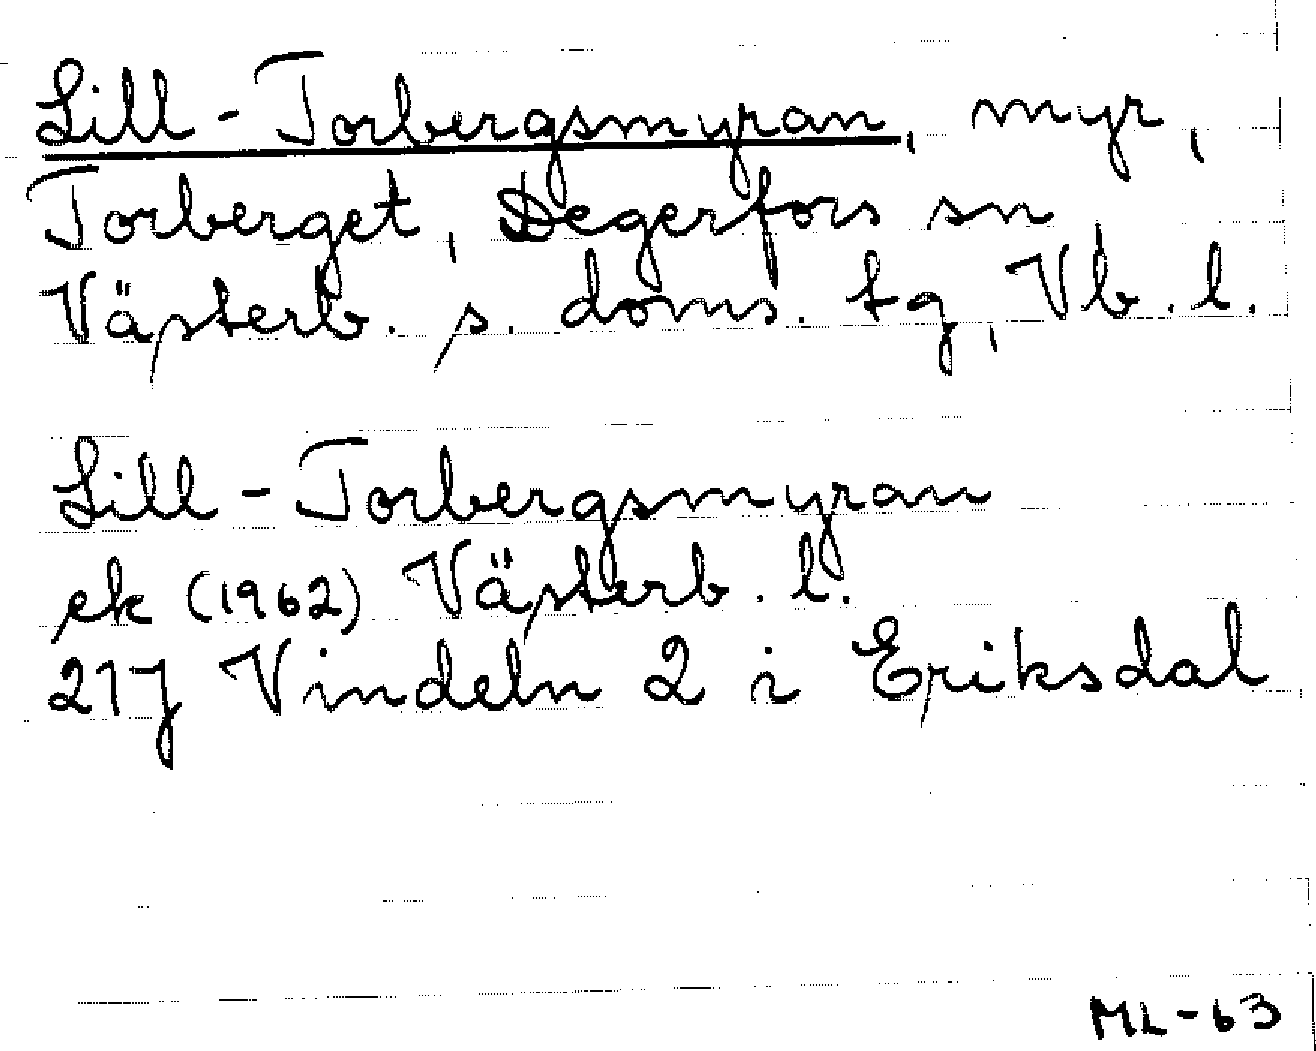 Lill-Torbergsmyran, myr,
Torberget, Degerfors sn
Västerb. s. doms. tg, Vb. l.
Lill-Torbergsmyran
ek (1962) Västerb. l.
21J Vindeln 2 i Eriksdal
ML-63